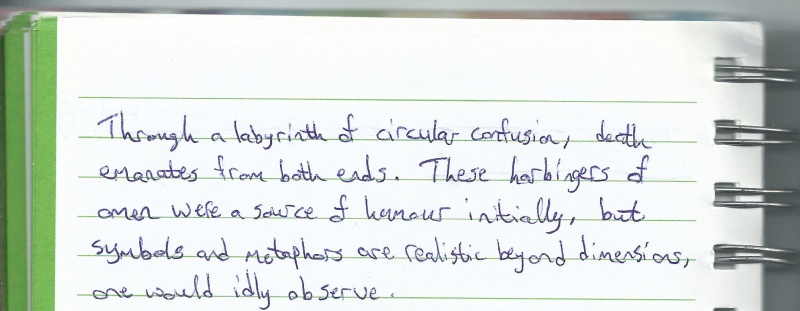 Through a labyrinth of circular confusion, death
emanates from both ends. These harbingers of
omen were a source of humour initially, but
symbols and metaphors are realistic beyond dimensions,
one would idly observe.